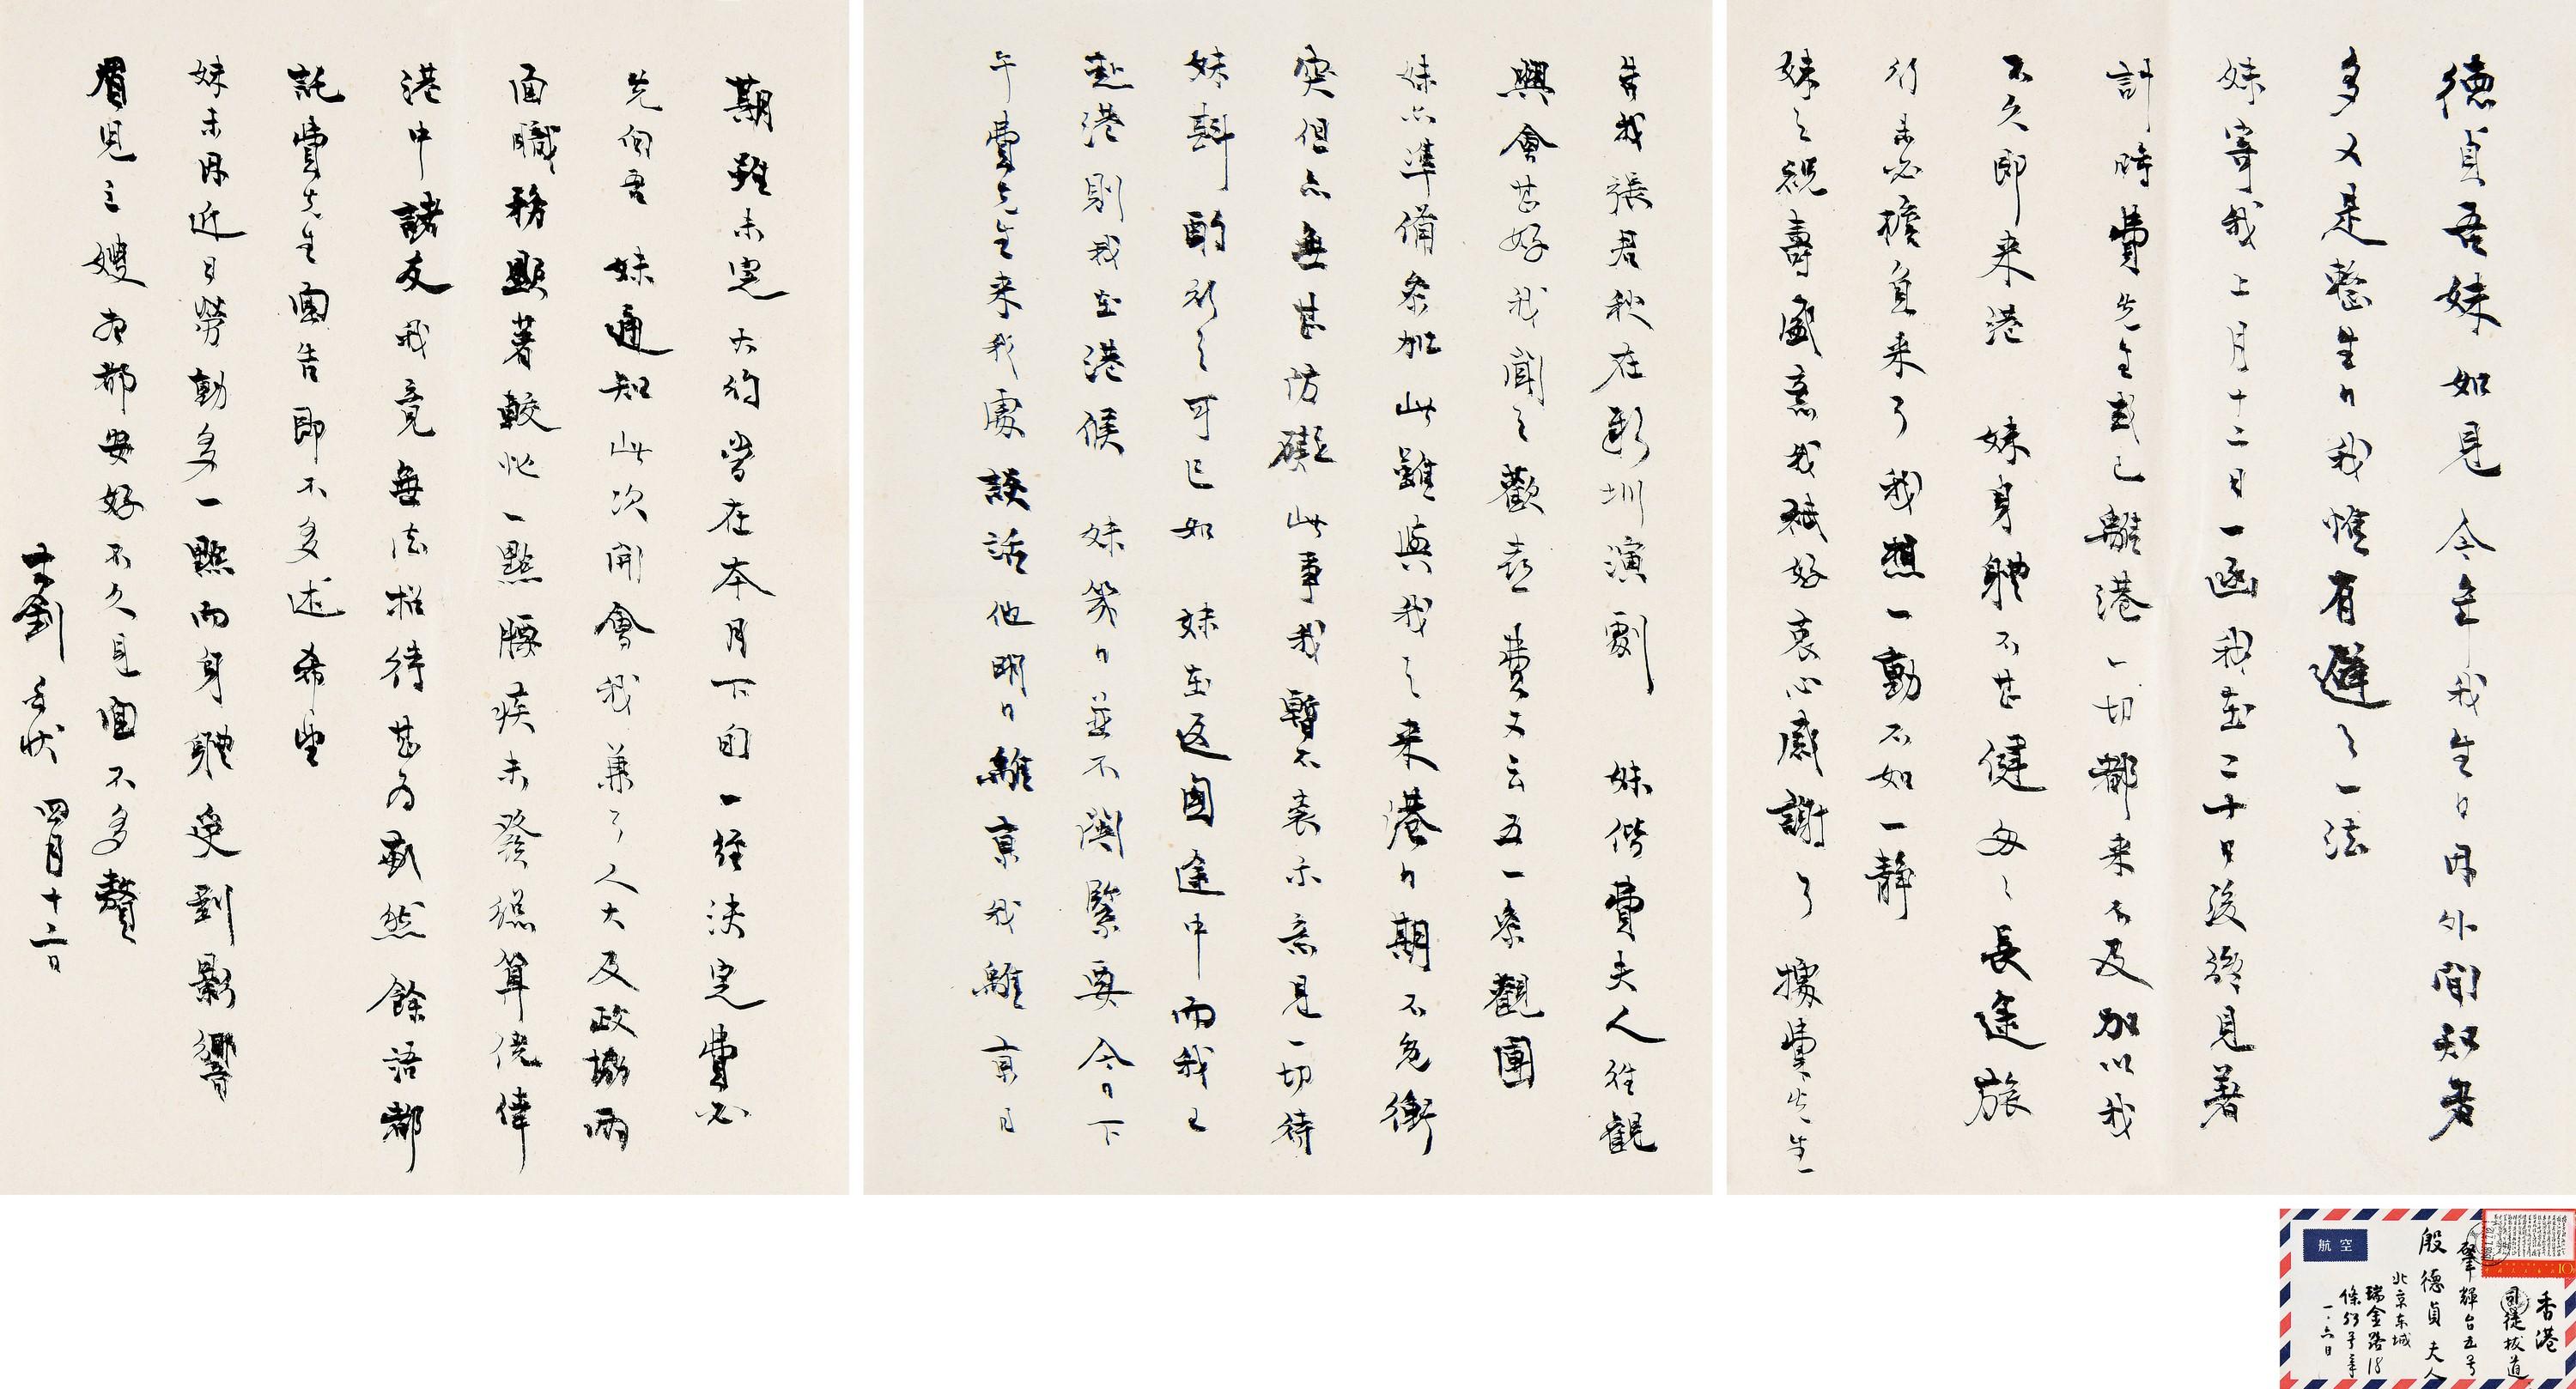 德貞吾妹如見 今年我生日用外聞知者
多又是整生日我惟有避之一法
妹寄我上月十二日一函我至二十日後始見着
計時費先生或已離港一切都來不及加以我
不久即來港 妹身體不甚健匆匆長途旅
行未必擔負來了我想一動不如一靜
妹之祝壽盛意我祇好衷心感謝了 據費先生
告我張君秋在深圳演劇 妹偕費夫人往觀
興會甚好我聞之歡喜費又云五一參觀團
妹亦準備參加此雖與我之來港日期不免衝
突但亦無甚妨礙此事我暫不表示意見一切待
妹斟酌行之可已如 妹在返國途中而我已
赴港則我在港候 妹幾日並不關緊要今日下
午費先生來我處談話他明日離京我離京日
期雖未定大約當在本月下旬一經決定費必
先向吾 妹通知此次開會我兼了人大及政協兩
面職務顯著較忙一點腰疾未發總算僥倖
港中諸友我竟無法招待甚為歉然餘語都
託費先生面告即不多述希望
妹未因近日勞動多一點而身體受到影響
眉兒之嫂處都安好不久見面不多贅
士釗 手狀 四月十二日
香港
司徒拔道
肇輝台五号
殷德貞夫人
北京东城
瑞金路18
條53号章
一·六日
航空
10